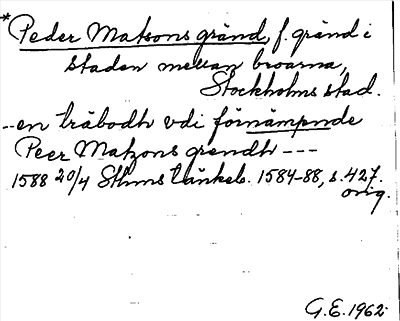 * Peder Matsons gränd, f. gränd i
staden mellan broarna,
Stockholms stad.
--en träbodh vdi förnämpnde
Peer Matzons grendh ---
1588 20/4 Sthms tänkeb. 1584-88, s. 427.
orig.
G.E. 1962